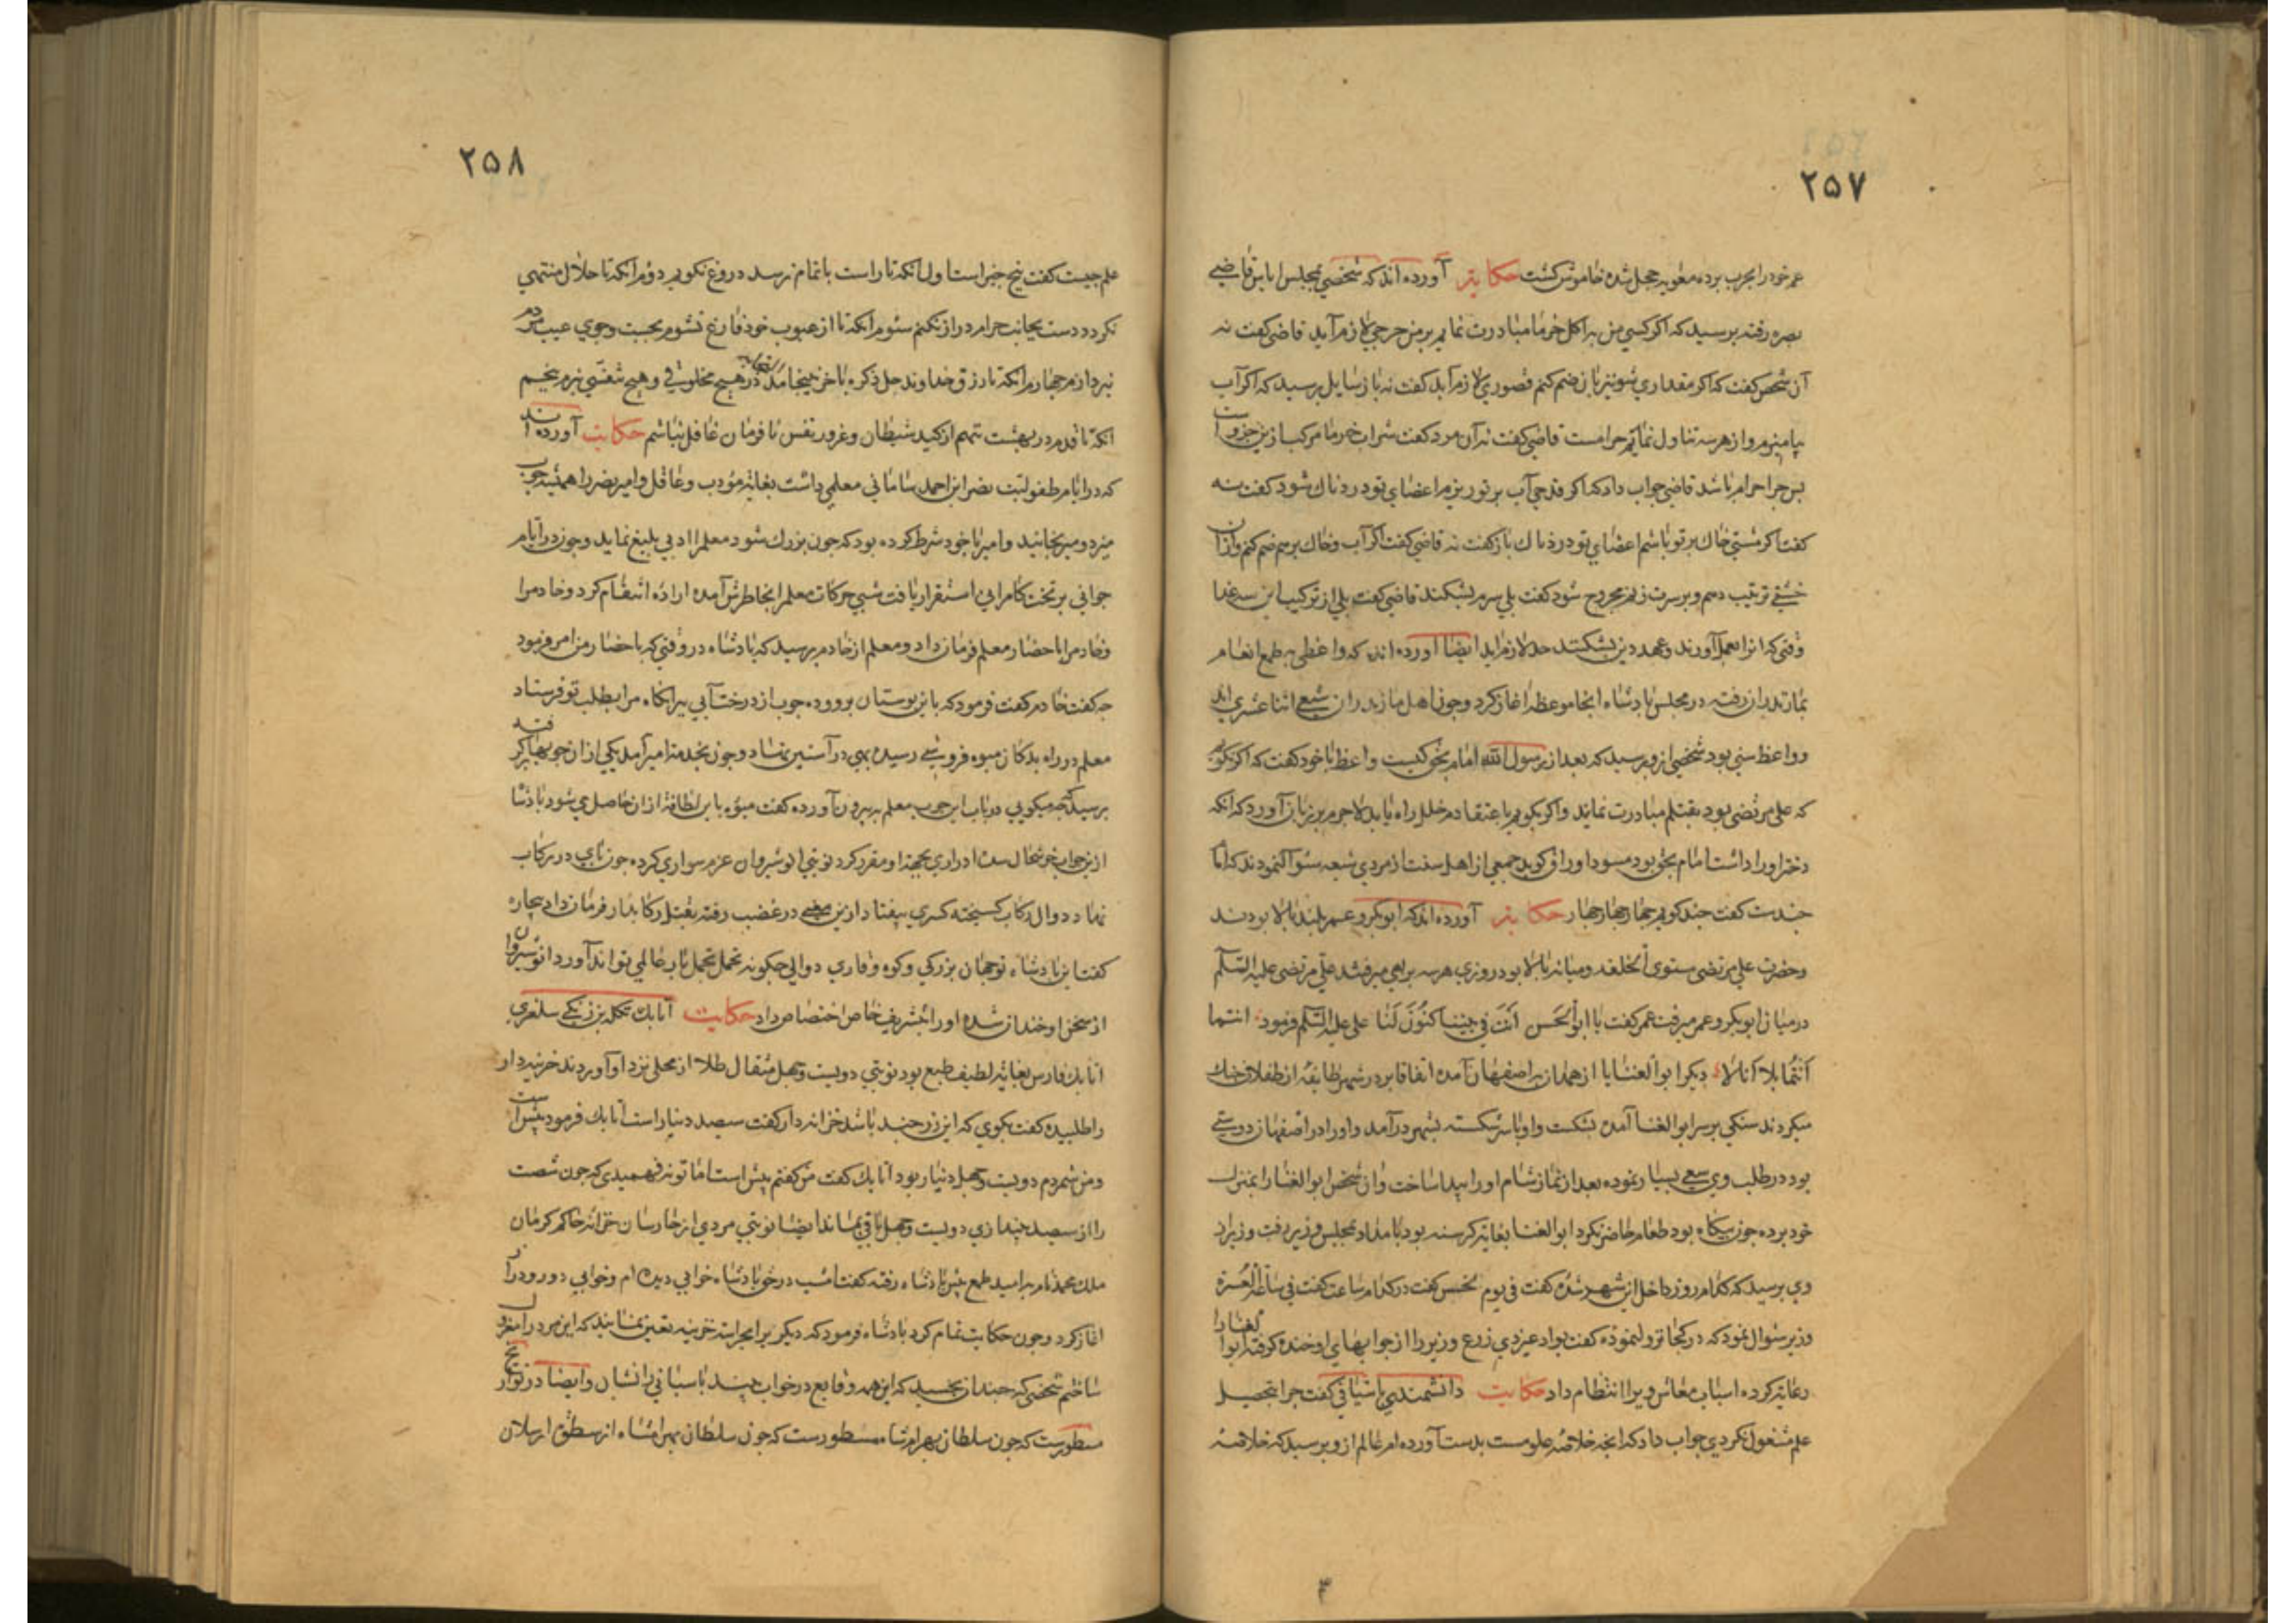 ۲۵۷
عم خود را بحرب برده معویه خجل شده خاموش کشت حکایت آورده اند که شخصی بمجلس ایاس قاضی
بصره رفته پرسید که اکر کسی من به اکل خرما مبادرت نمایم بر من حرجی لازم آید قاضی کفت نه
آن شخص کفت که اکر مقداری شونیز با ان ضم کنم قصوری لازم آید کفت نه باز سایل پرسید که اکر آب
بیامیزم و از هر سه تناول نمایم حرامست قاضی کفت نه آن مرد کفت شراب خرما مرکب ازین جزو است
پس چرا حرام باشد قاضی جواب داد که اکر قدحی آب بر تو ریزم اعضای تو دردناک شود کفت نه
کفت اکر مشتی خاک بر تو پاشم اعضای تو دردناک باز کفت نه قاضی کفت اکر آب و خاک برهم ضم کنم و از ان
خشتی ترتیب دهم و بر سرت زنم مجروح شود کفت بلی سرم بشکند قاضی کفت بلی از ترکیب این سه غذا
وقتی که انرا بعمل آورند و عهد دین بشکنند حد لازم آید ایضا آورده اند که واعظی به طمع انعام
بمازندران رفته در مجلس پادشاه انجا موعظه آغاز کرد و چون اهل مازندران شیع اثنا عشری اند
و واعظ سنی بود شخصی از و پرسید که بعد از رسول الله امام بحق کیست واعظ با خود کفت که اکر نکویم
که علی مرتضی بود بقتلم مبادرت نمایند و اکر بکویم باعتقادم خلل راه یابد لاجرم بر زبان آورد که انکه
دختر او را داشت امام بحق بود مسود اوراق کوید جمعی از اهل سنت از مردی شیعه سئوال نمودند که اما
چندست کفت چند کویم چهار چهار چهار حکایت آورده اند که ابوبکر و عمر بلند بالا بودند
و حضرت علی مرتضی مستوی الخلقه و میانه بالا بود روزی هر سه براهی میرفتند علی مرتضی علیه السلام
در میان ابوبکر و عمر میرفت عمر کفت یا ابوالحسن انت فی بیننا کنون لنا علی علیه السلام فرمود انتما
انتما بلا انا لا دیکر ابوالغنایا از همدان به اصفهان آمده اتفاقا بر در شهر طایفه از طفلان جنک
میکردند سنکی بر سر ابوالغنا آمده بشکست و او با سر شکسته بشهر درآمد و او را در اصفهان دوستی
بود در طلب وی سعی بسیار نموده بعد از نماز شام او را پیدا ساخت و ان شخص ابوالغنا را بمنزل
خود برده چون بیکاه بود طعام حاضر نکرد ابوالغنا بغایه کرسنه بود بامداد بمجلس وزیر رفت وزیر از
وی پرسید که کدام روز داخل این شهر شده کفت فی یوم نحس کفت در کدام ساعت کفت فی ساعة العسرة
وزیر سئوال نمود که در کجا نزول نموده کفت بواد غیر ذی زرع وزیر را از جوابهای او خنده کرفته ابوالغنا را
رعایه کرده اسباب معاش ویرا انتظام داد حکایت دانشمندی با شبانی کفت چرا بتحصیل
علم مشغول نکردی جواب داد که انچه خلاصه علومست بدست آورده ام عالم از و پرسید که خلاصه
۲۵۸
علم چیست کفت پنج چیز است اول انکه تا راست باتمام نرسد دروغ نکویم دوم انکه تا حلال منتهی
نکردد دست بجانب حرام دراز نکنم سئوم انکه تا از عیوب خود فارغ نشوم بجست و جوی عیب مردم
نپردازم چهارم انکه تا رزق خداوند جل ذکره باخر نینجامد در هیچ مخلوقی و هیچ متنفسی نروم پنجم
انکه تا قدم در بهشت ننهم از کید شیطان و غرور نفس نافرمان غافل نباشم حکایت آورده اند
که در ایام طفولیت نصر ابن احمد سامانی معلمی داشت بغایة مؤدب و عاقل و امیر نصر را همیشه چوب
میزد و میرنجانید و امیر با خود شرط کرده بود که چون بزرک شود معلم را ادبی بلیغ نماید و چون در ایام
جوانی بر تخت کامرانی استقرار یافت شبی حرکات معلم را بخاطرش آمده اراده انتقام کرد و خادم را
و خادم را باحضار معلم فرمان داد و معلم از خادم پرسید که پادشاه در وقتی که باحضار من امر فرمود
چه کفت خادم کفت فرمود که باین بوستان برو و ده چوب از درخت آبی بیر انکاه مرا بطلب تو فرستاد
معلم در راه بدکان میوه فروشی رسیده بهی در آستین نهاد و چون بخدمت امیر آمد یکی از ان چوبها کرفته
پرسید که چه میکویی در باب این چوب معلم به بیرون آورده کفت میوه باین لطافة از ان حاصل می شود پادشا
ازین جواب خوشحال شده ادراری بجهة او مقرر کرد نوبتی انوشیروان عزم سواری کرده چون پای در رکاب
نهاد دوال رکاب کسیخته کسری بیفتاد ازین معنی در غضب رفته بقتل رکابدار فرمان داد بیچاره
کفت این پادشاه توجهان بزرکی و کوه وقاری دوالی چکونه تحمل تحمل بار عالمی تواند آورد انوشیروان
از سخن او خندان شده او را بتشریف خاص اختصاص داد حکایت آتابک تکله بن زنکی سلغری
اتابک فارس بغایة لطیف طبع بود نوبتی دویست و چهل مثقال طلا از محلی نزد او آوردند خزینه دار
را طلبیده کفت بکوی که این زر چند باشد خزانه دار کفت سیصد دینار است آتابک فرمود بیش است
و من شمردم دویست و چهل دینار بود آتابک کفت من کفتم بیش است اما تو نفهمیدی که چون شصت
را از سیصد بیندازی دویست و چهل باقی بماند ایضا نوبتی مردی از حارسان خزانه حاکم کرمان
ملک محمد نام به امید طمع پیش پادشاه رفته کفت امشب در حق پادشاه خوابی دیده ام و خوابی دور و دراز
اغاز کرد و چون حکایت تمام کرد پادشاه فرمود که دیکر برا بحراست خزینه تعین نمایند که این مرد را معزول
ساختم شخصی که چندان بخسبد که این همه وقایع در خواب بیند پاسبانی را نشان و ایضا در تواریخ
مسطورست که چون سلطان بهرامشاه مسطورست که چون سلطان بهرامشاه از سطوت ارسلان